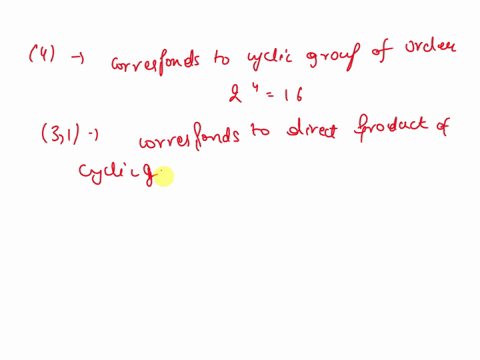 (4) → corresponds to cyclic group of order
2^4 = 16
(3,1) → corresponds to direct product of
cyclic g